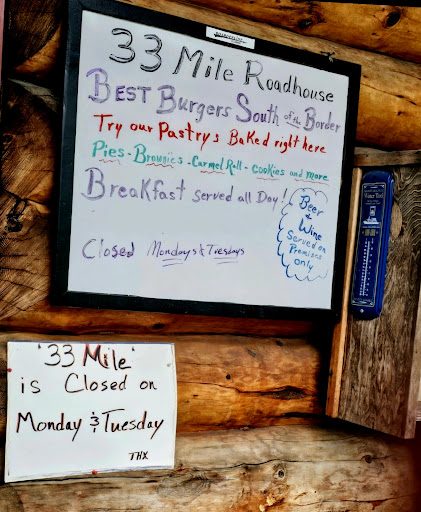 33 Mile Roadhouse
BEST BURGERS SOUTH of the BORDER
Try our Pastrys Baked right here
Pies - Brownies - Carmel Roll - cookies and more
Breakfast served all Day!
Beer
&
Wine
Served on
Premises
only
Closed Mondays & Tuesdays
'33 Mile'
is Closed on
Monday & Tuesday
THX